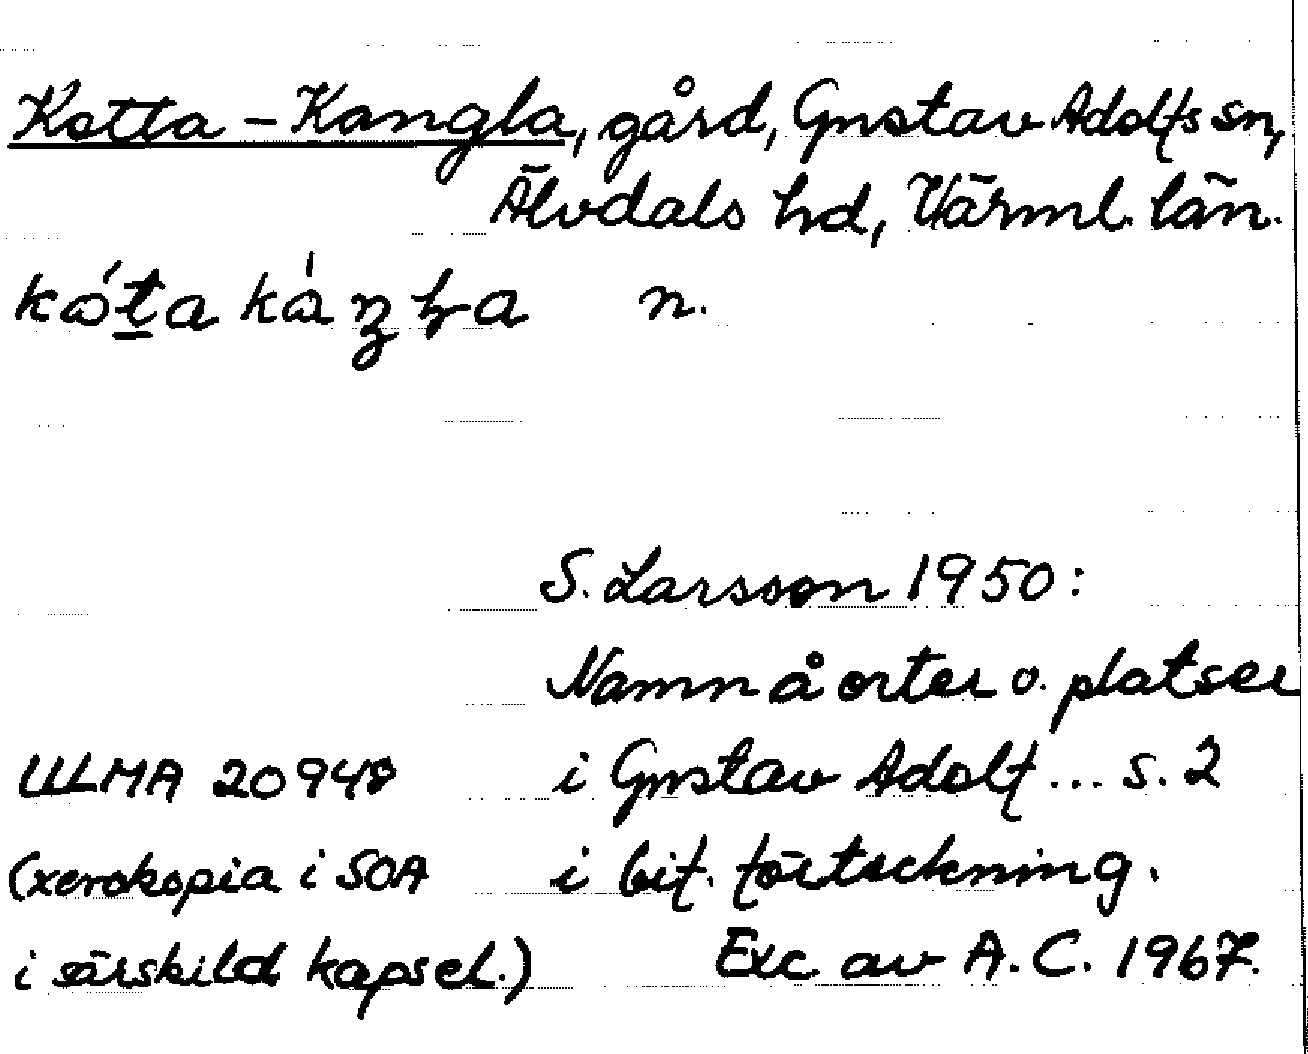 Kotta - Kangla, gård, Gustav Adolfs sn,
Älvdals hd, Värml. län.
n.
S. Larsson 1950:
Namn å orter o. platser
ULMA 20948 i Gustav Adolf ... s. 2
(xerokopia i SOA i bif. förteckning.
i särskild kapsel.) Exc av A.C. 1967.